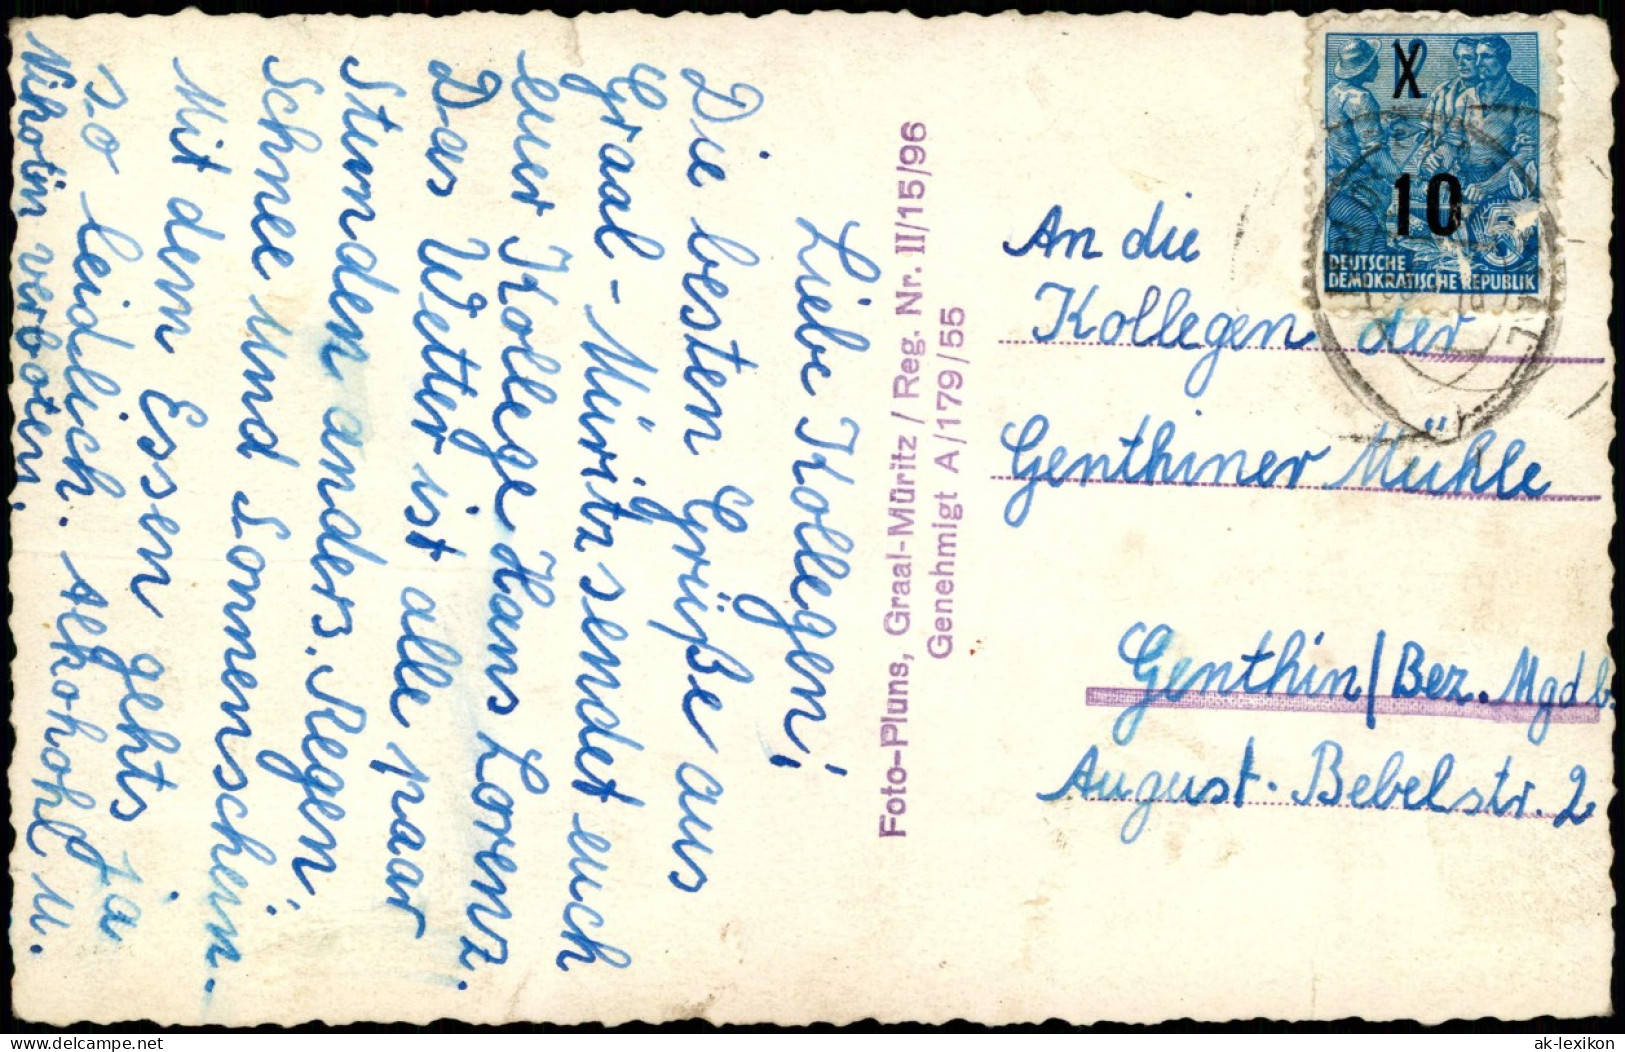 Liebe Kollegen,
Die besten Grüße aus
Graal-Müritz sendet euch
euer Kollege Hans Lorenz.
Das Wetter ist alle paar
Stunden anders. Regen,
Schnee und Sonnenschein.
Mit dem Essen gehts ja
so leidlich. Alkohohl u.
Nikotin verboten.
Foto-Pluns, Graal-Müritz / Reg. Nr. II/15/96
Genehmigt A/179/55
X
10
5
DEUTSCHE
DEMOKRATISCHE REPUBLIK
An die
Kollegen der
Genthiner Mühle
Genthin/Bez. Mgdb.
August-Bebelstr. 2
delcampe.net
ak-lexikon